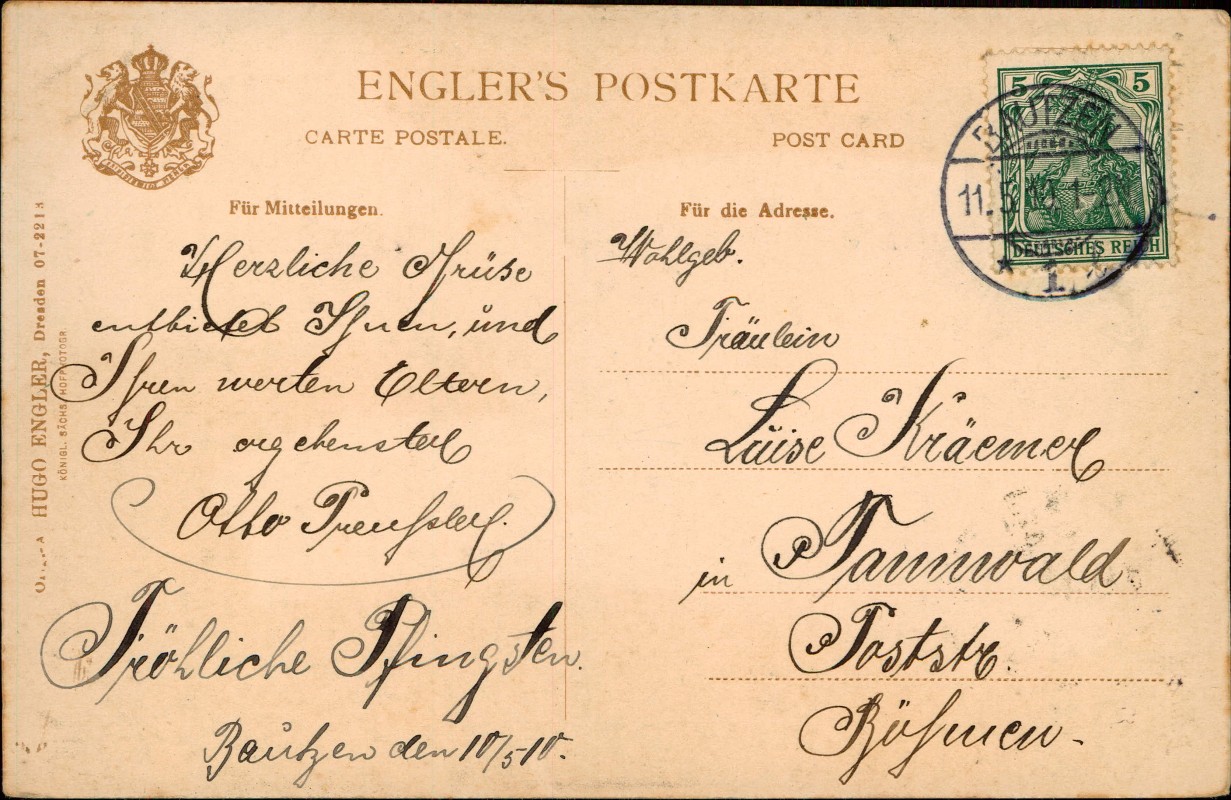 ENGLER'S POSTKARTE
CARTE POSTALE.
POST CARD
Für Mitteilungen.
Herzliche Grüße
entbietet Ihnen, und
Ihren werten Eltern,
Ihr ergebenster
Otto Preußler.
Fröhliche Pfingsten.
Bautzen den 10/5 10.
Für die Adresse.
Wohlgeb.
Fräulein
Luise Kräemer
in Tannwald
Poststr.
Böhmen-
5 5
DEUTSCHES REICH
BAUTZEN
11.5.10.
* 1
HUGO ENGLER, Dresden 07-2213
KÖNIGL. SÄCHS. HOFPHOTOGR.